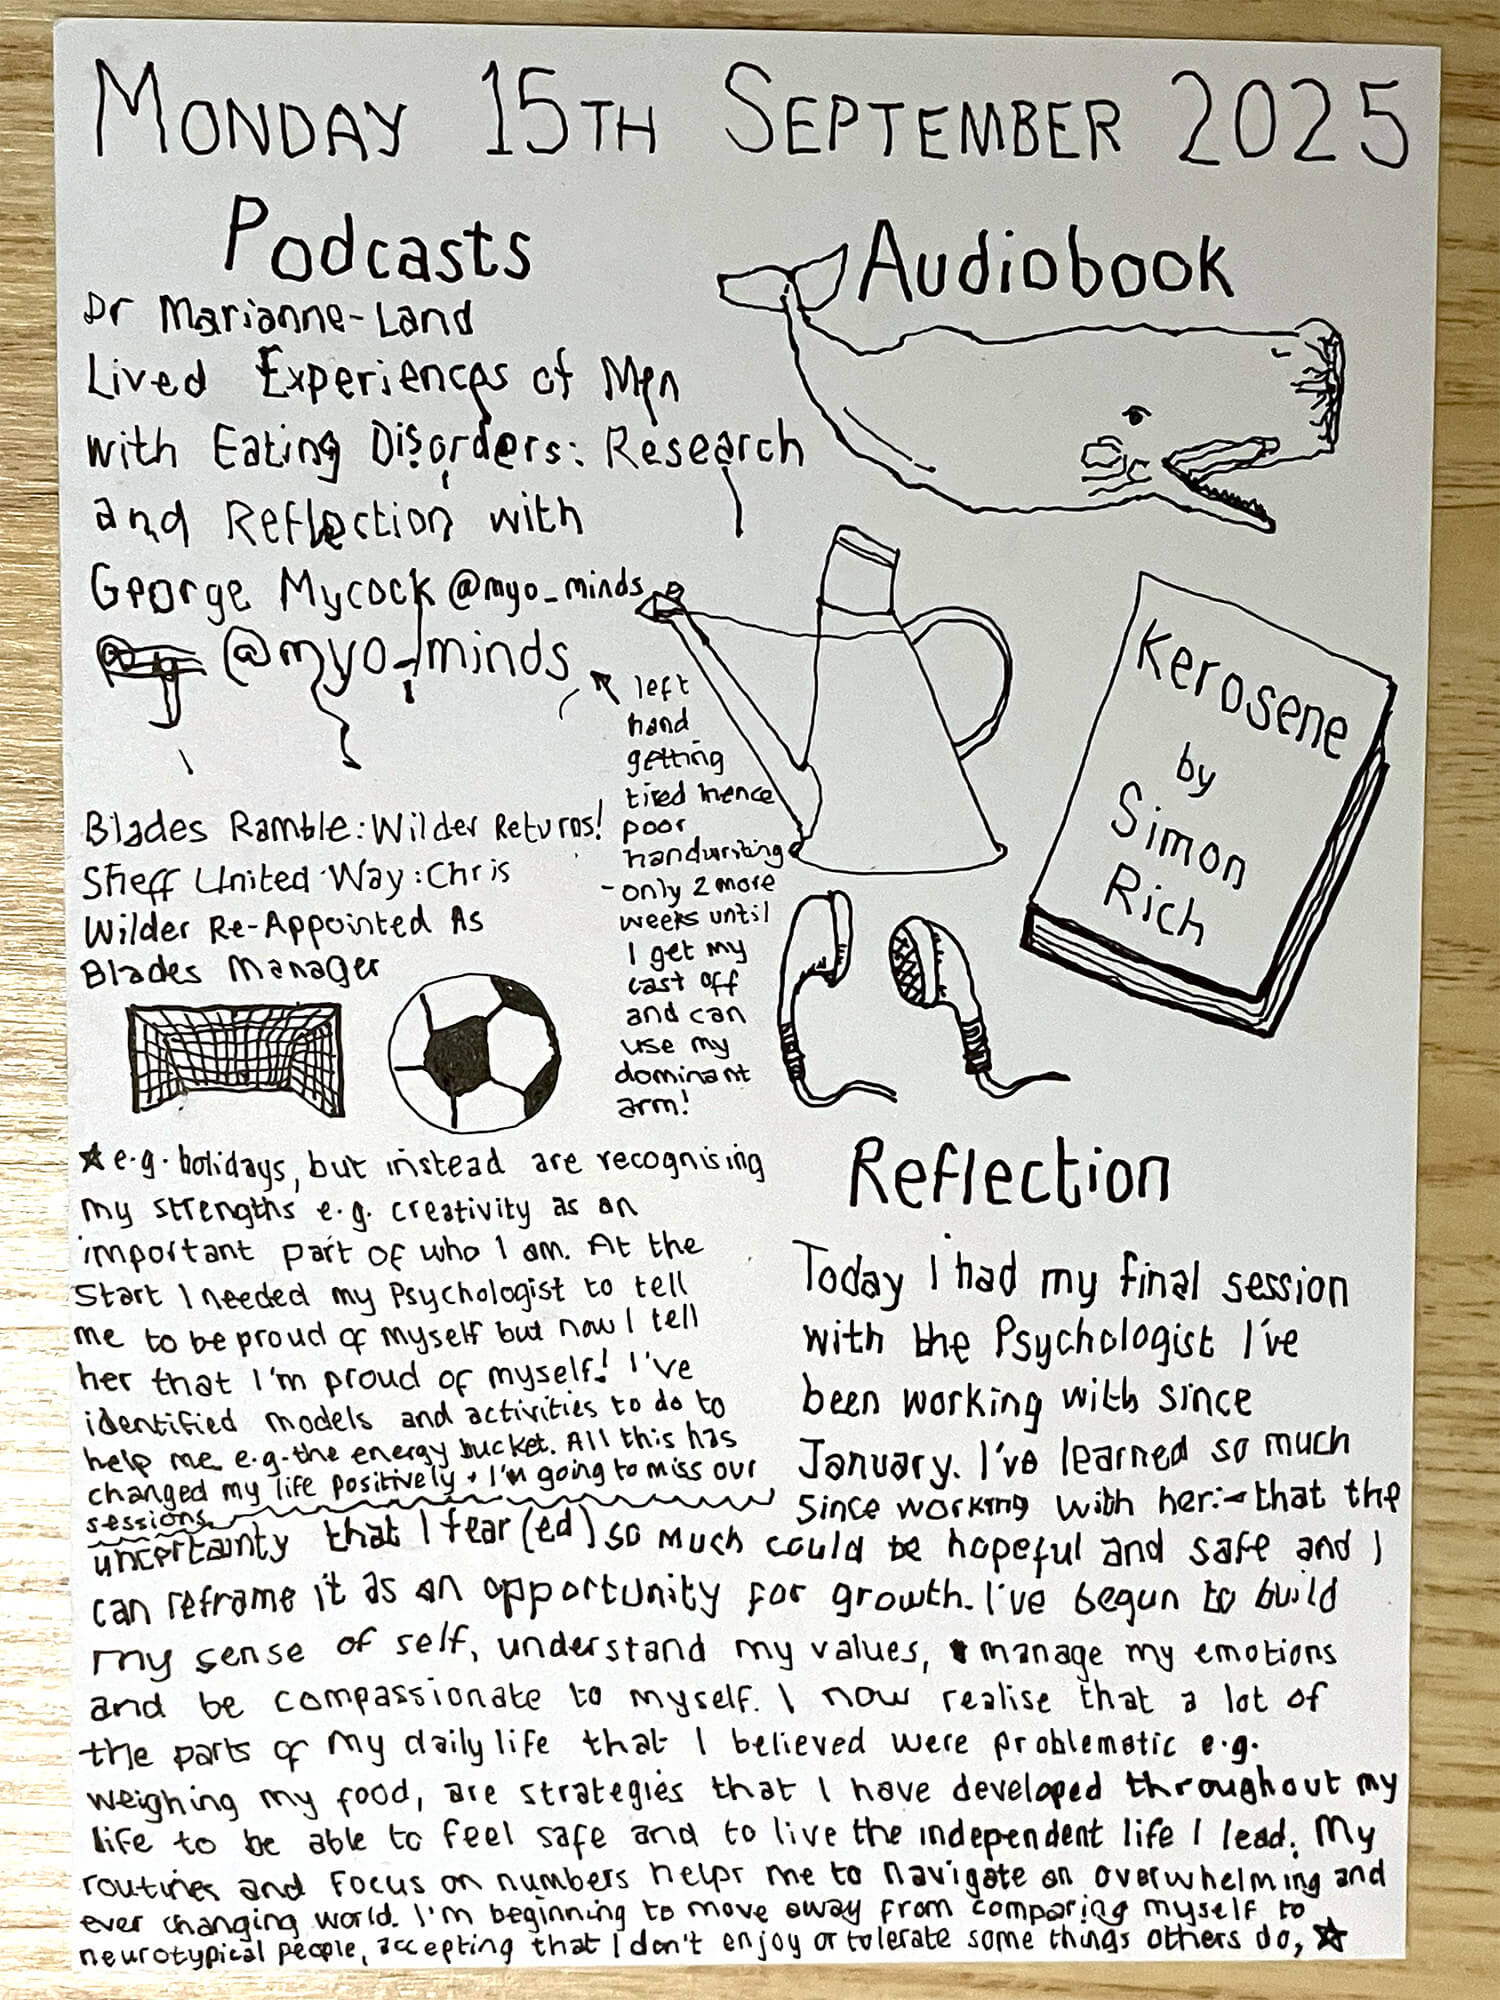 MONDAY 15TH SEPTEMBER 2025
Podcasts
Dr Marianne-Land
Lived Experiences of Men
with Eating Disorders: Research
and Reflection with
George Mycock @myo_minds
@myo_minds
left
hand
getting
tired hence
poor
handwriting
- only 2 more
weeks until
I get my
cast off
and can
use my
dominant
arm!
Blades Ramble: Wilder Returns!
Sheff United Way: Chris
Wilder Re-Appointed As
Blades Manager
Audiobook
Kerosene
by
Simon
Rich
Reflection
Today I had my final session
with the Psychologist I've
been working with since
January. I've learned so much
since working with her:- that the
uncertainty that I fear (ed) so much could be hopeful and safe and I
can reframe it as an opportunity for growth. I've begun to build
my sense of self, understand my values, manage my emotions
and be compassionate to myself. I now realise that a lot of
the parts of my daily life that I believed were problematic e.g.
weighing my food, are strategies that I have developed throughout my
life to be able to feel safe and to live the independent life I lead. My
routines and focus on numbers helps me to navigate an overwhelming and
ever changing world. I'm beginning to move away from comparing myself to
neurotypical people, accepting that I don't enjoy or tolerate some things others do, ☆
☆ e.g. holidays, but instead are recognising
my strengths e.g. creativity as an
important part of who I am. At the
start I needed my Psychologist to tell
me to be proud of myself but now I tell
her that I'm proud of myself! I've
identified models and activities to do to
help me e.g. the energy bucket. All this has
changed my life positively + I'm going to miss our
sessions.